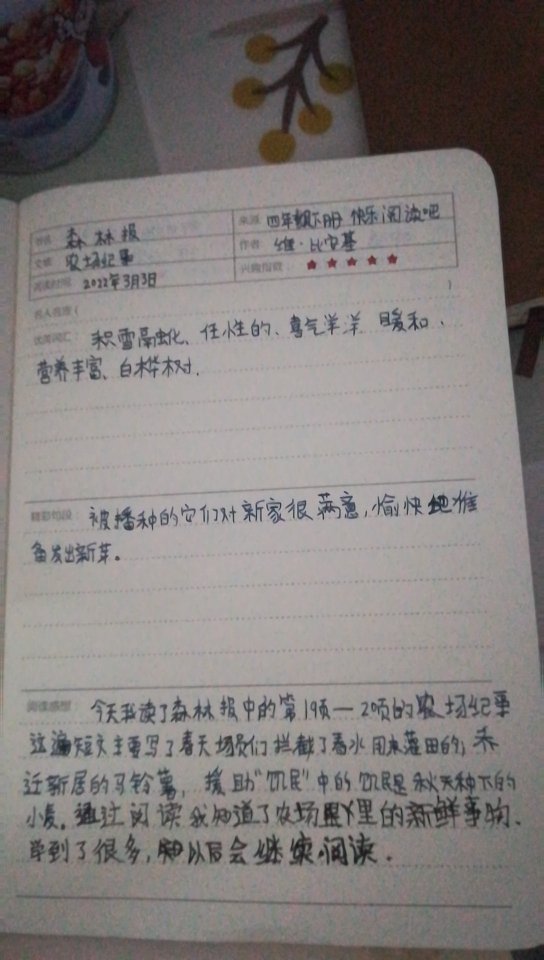 书名 森林报 来源 四年级下册 快乐阅读吧
文章 农场纪事 作者 维·比安基
阅读时间 2022年3月3日 兴趣指数 ★★★★★
名人直言( )
优美词汇： 积雪融化、任性的、喜气洋洋 暖和、
营养丰富、白桦树.
精彩句段： 被播种的它们对新家很满意,愉快地准
备发出新芽。
阅读感想： 今天我读了森林报中的第19页—2页的农场纪事
这篇短文主要写了春天场员们拦截了春水用来灌田的,乔
迁新居的马铃薯, 援助"饥民"中的饥民是秋天种下的
小麦。通过阅读我知道了农场里的新鲜事物、
学到了很多,以后会继续阅读.